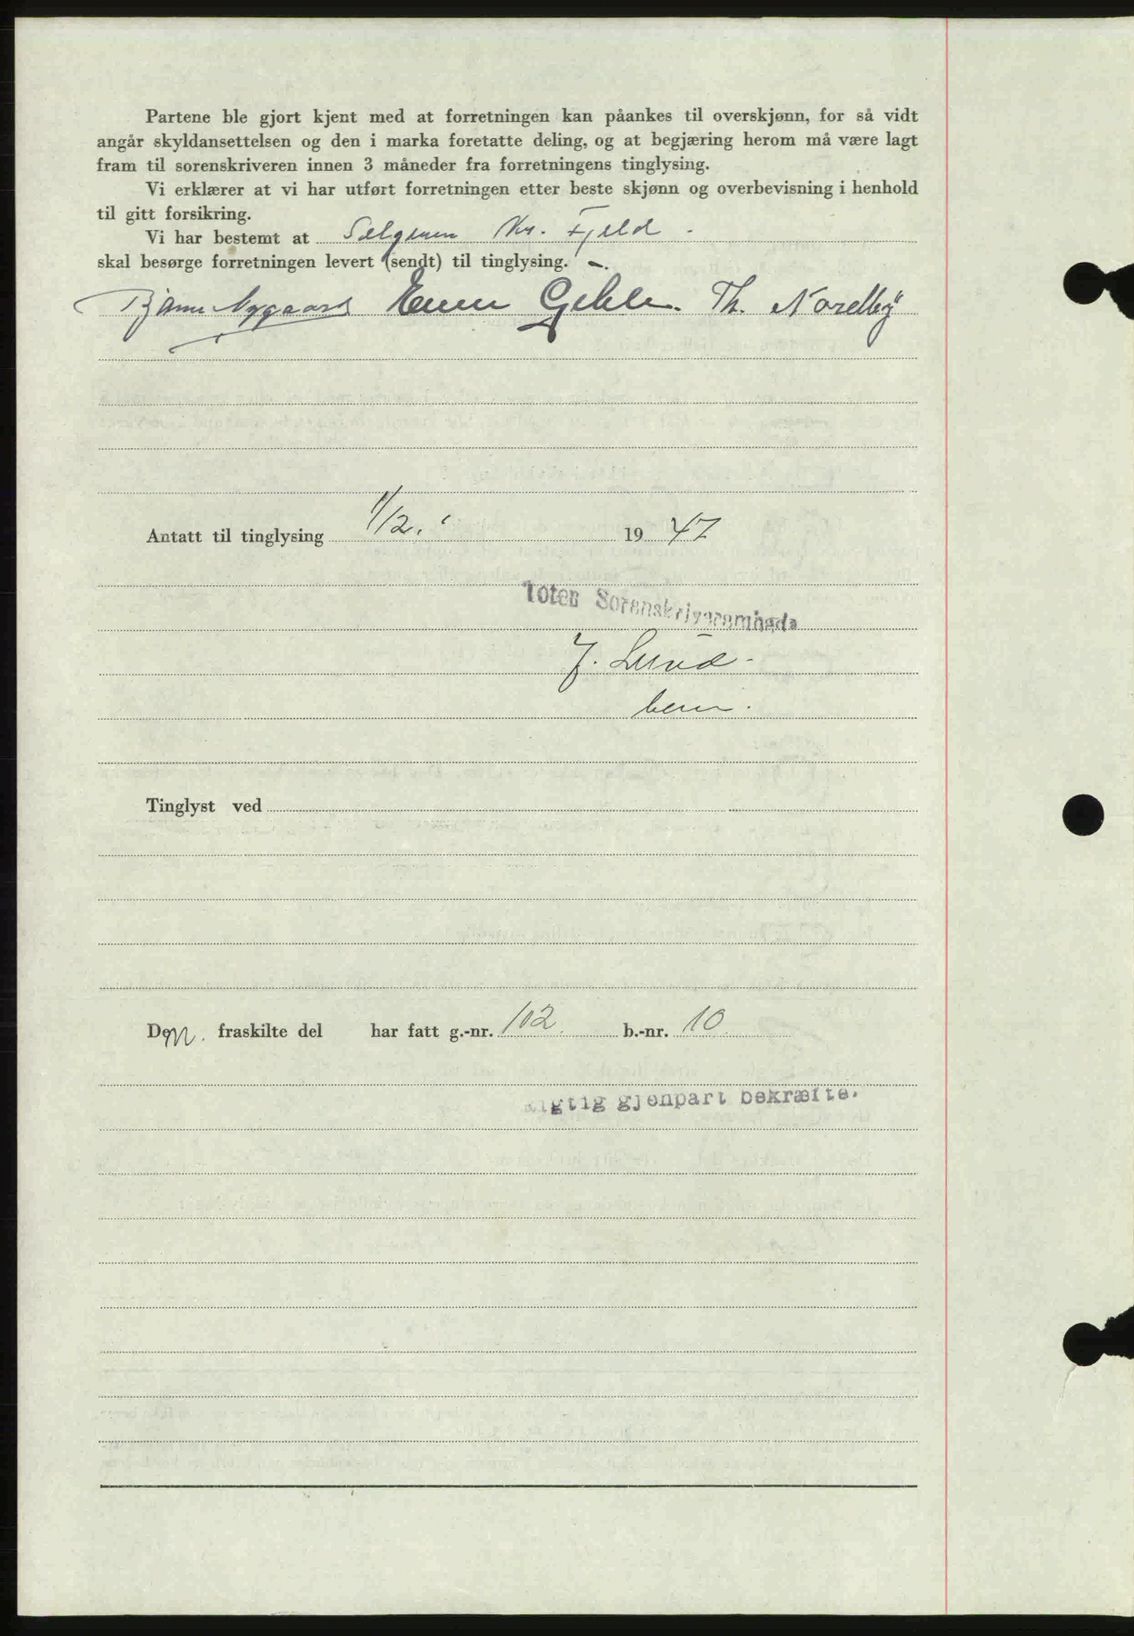 Partene ble gjort kjent med at forretningen kan påankes til overskjønn, for så vidt
angår skyldansettelsen og den i marka foretatte deling, og at begjæring herom må være lagt
fram til sorenskriveren innen 3 måneder fra forretningens tinglysing.
Vi erklærer at vi har utført forretningen etter beste skjønn og overbevisning i henhold
til gitt forsikring.
Vi har bestemt at Selgeren Kr. Fjeld.
skal besørge forretningen levert (sendt) til tinglysing. -.
Bjarne Nygaard Even Th. Nordby
Antatt til tinglysing 1/12. 1947
Toten Sorenskriverembede
J. Lund.
Tinglyst ved
Den. fraskilte del har fatt g.-nr. 102 b.-nr. 10
Rigtig gjenpart bekræfte.